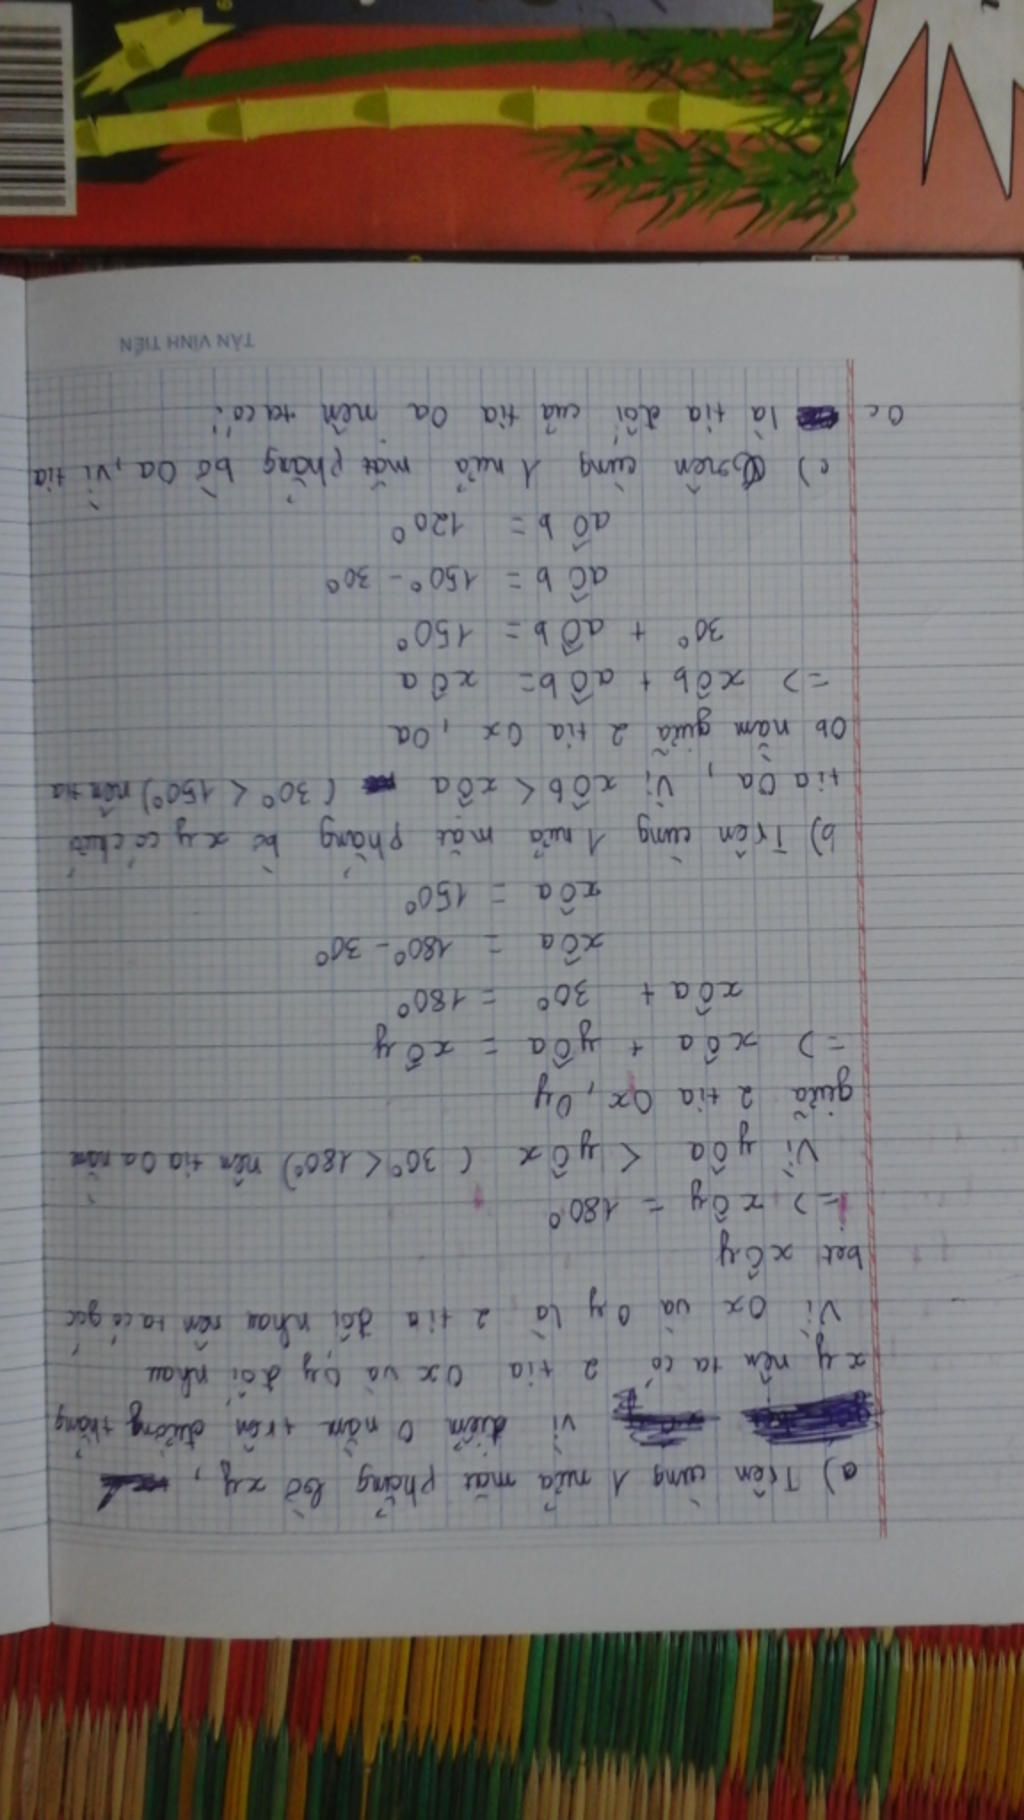 a) Trên cùng 1 nửa mặt phẳng bờ xy,
vì điểm O nằm trên đường thẳng
xy nên ta có 2 tia Ox và Oy đối nhau
Vì Ox và Oy là 2 tia đối nhau nên ta có góc
bẹt xÔy
=> xÔy = 180°
Vì yÔa < yÔx (30° < 180°) nên tia Oa nằm
giữa 2 tia Ox, Oy
=> xÔa + yÔa = xÔy
xÔa + 30° = 180°
xÔa = 180° - 30°
xÔa = 150°
b) Trên cùng 1 nửa mặt phẳng bờ xy có chứa
tia Oa, Vì xÔb < xÔa (30° < 150°) nên tia
Ob nằm giữa 2 tia Ox, Oa
=> xÔb + aÔb = xÔa
30° + aÔb = 150°
aÔb = 150° - 30°
aÔb = 120°
c) Trên cùng 1 nửa mặt phẳng bờ Oa, vì tia
Oc là tia đối của tia Oa nên ta có:
TÂN VĨNH TIẾN